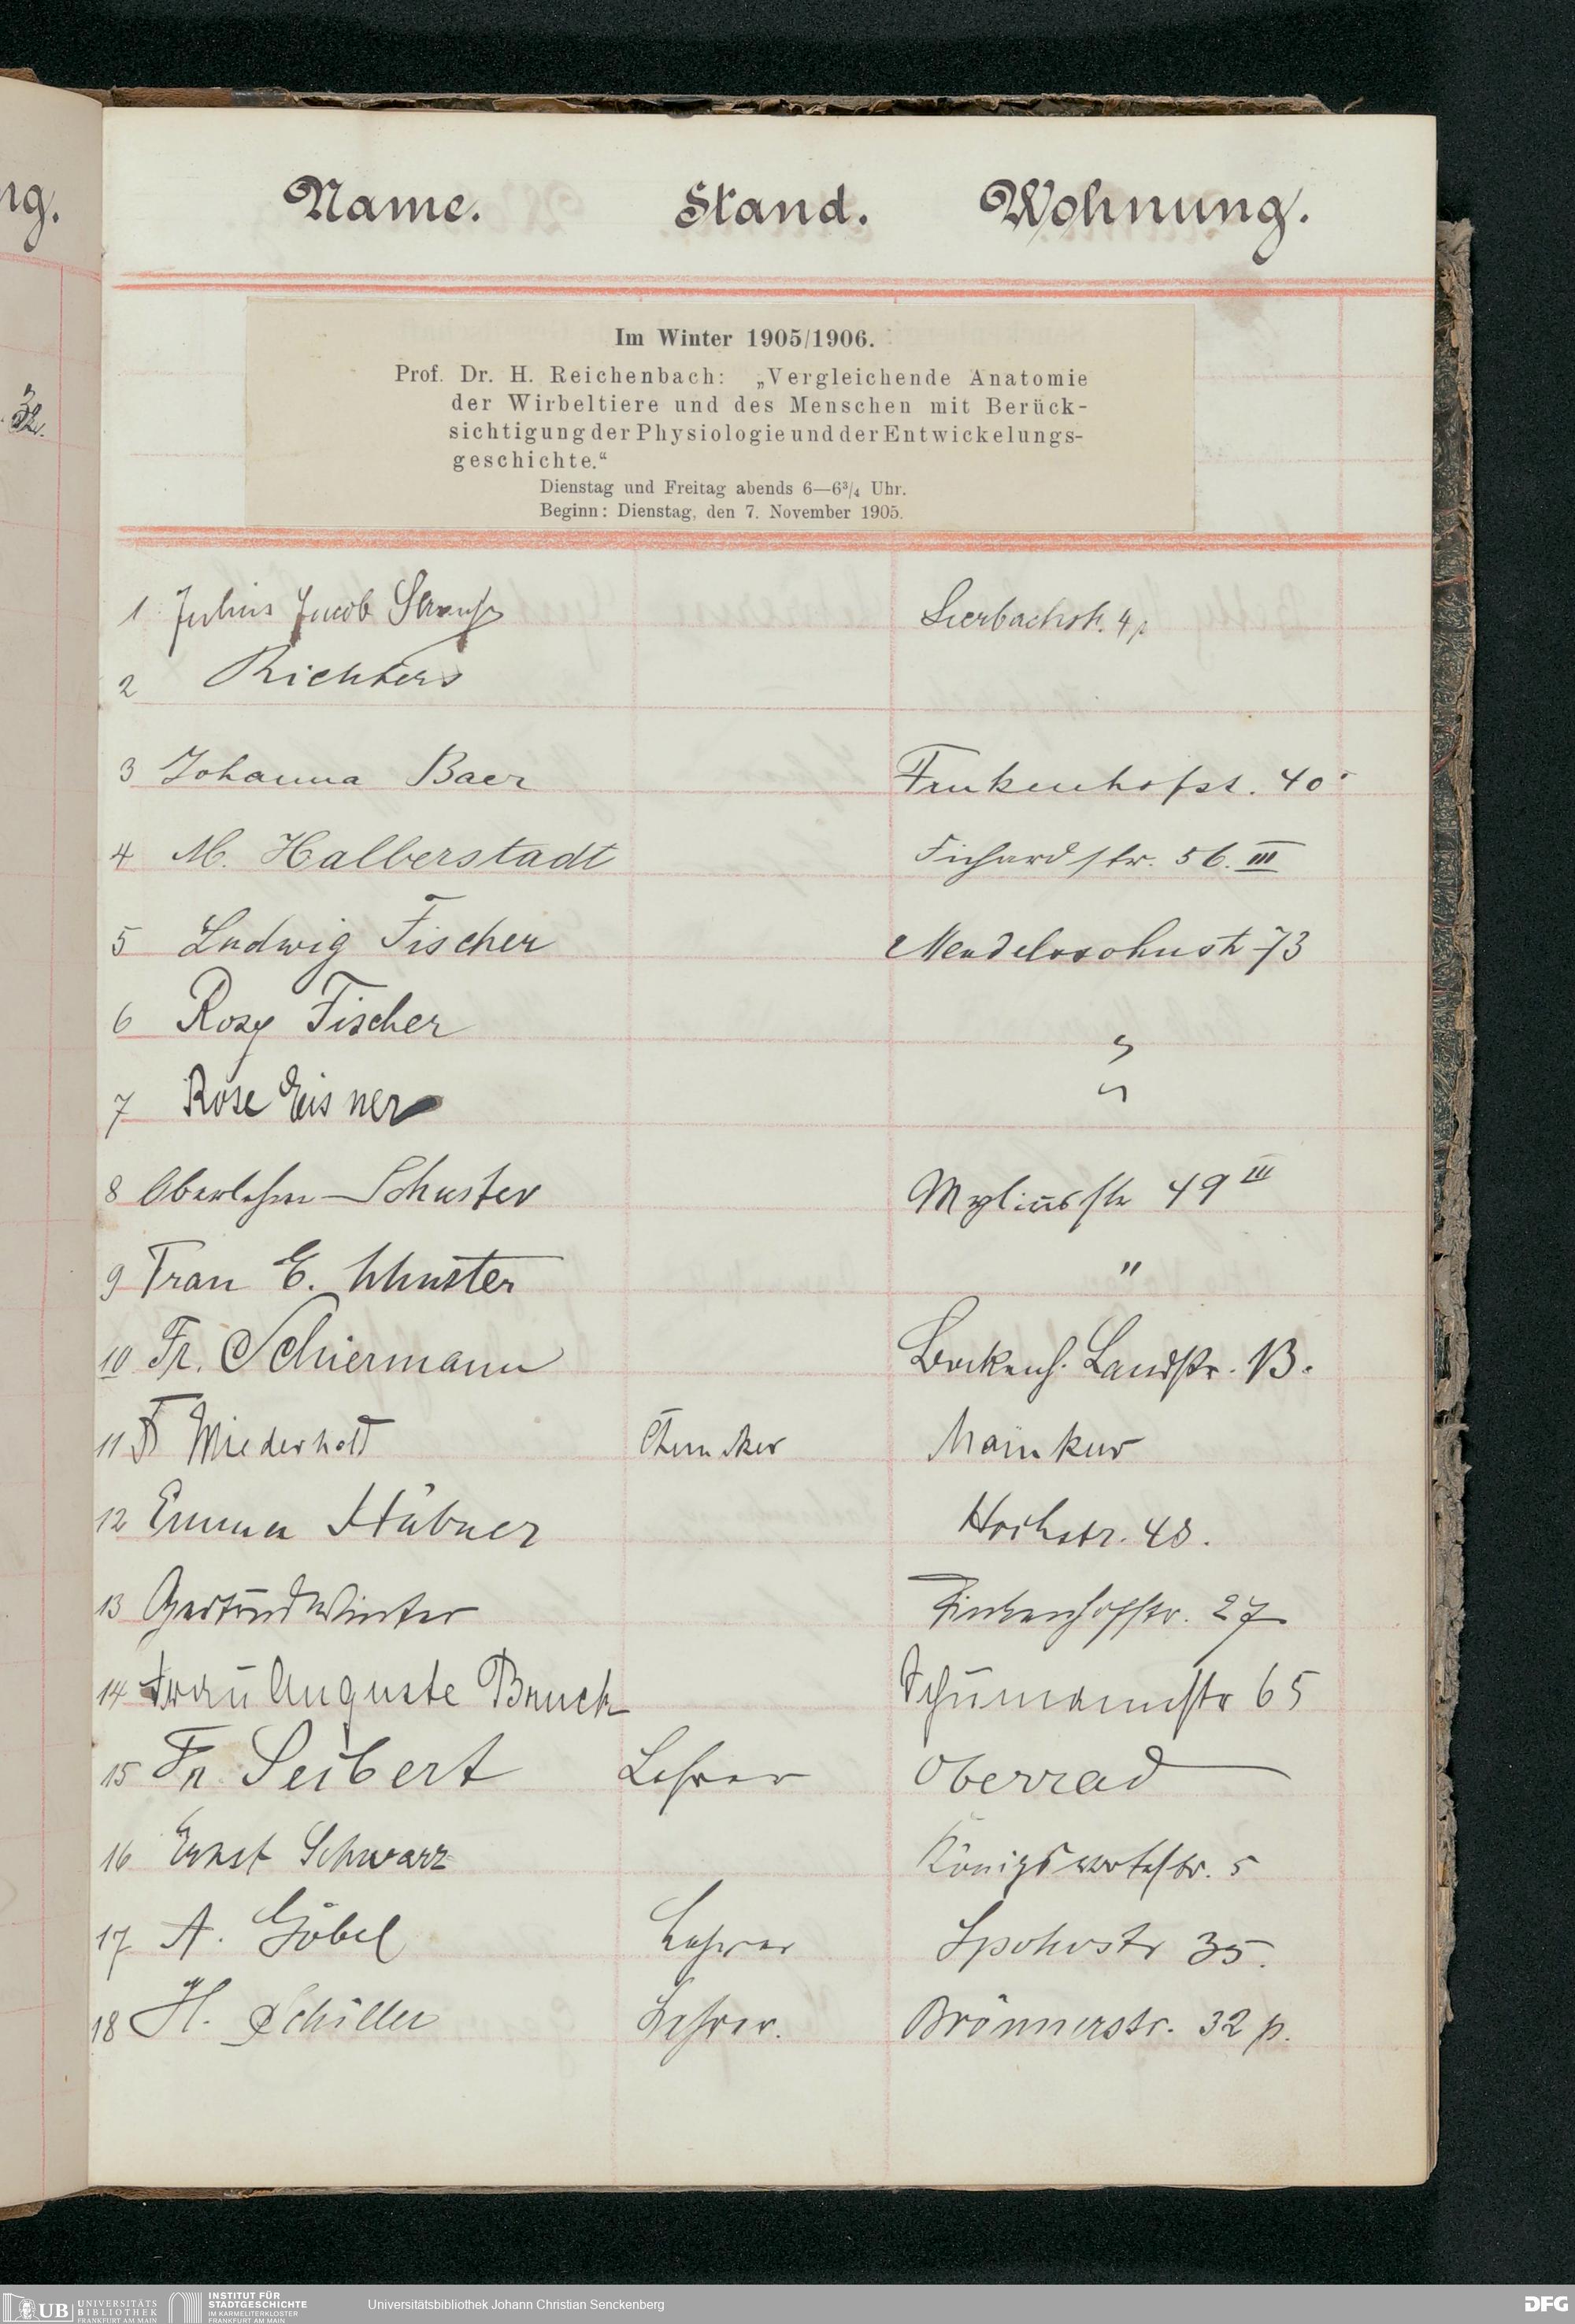 ng.
Name. Stand. Wohnung.
Im Winter 1905/1906.
Prof. Dr. H. Reichenbach: „Vergleichende Anatomie
der Wirbeltiere und des Menschen mit Berück-
sichtigung der Physiologie und der Entwickelungs-
geschichte.“
Dienstag und Freitag abends 6—6¾ Uhr.
Beginn: Dienstag, den 7. November 1905.
1 Julius Jacob Strauß
2 Richters
3 Johanna Baer 40
4 M. Halberstadt Fichardstr. 56. III
5 Ludwig Fischer Mendelssohnstr 73
6 Rosy Fischer "
7 Rose Eisner "
8 Oberlehrer Schuster Myliusstr 49 III
9 Frau E. Schuster "
10 Fr. Schiermann Bockenh. Landstr. 13.
11 Chemiker Mainkur
12 Emma Hübner Hochstr. 48.
13 Gertrud Winter Finkenhofstr. 27
14 Frau Auguste Bruck Schumannstr 65
15 Fr. Seibert Lehrer Oberrad
16 Ernst Schwarz Königswarterstr. 5
17 A. Göbel Lehrer Spohrstr 35.
18 H. Schiller Lehrer. Brönnerstr. 32 p.
UB UNIVERSITÄTS
BIBLIOTHEK
FRANKFURT AM MAIN
INSTITUT FÜR
STADTGESCHICHTE
IM KARMELITERKLOSTER
FRANKFURT AM MAIN
Universitätsbibliothek Johann Christian Senckenberg
DFG